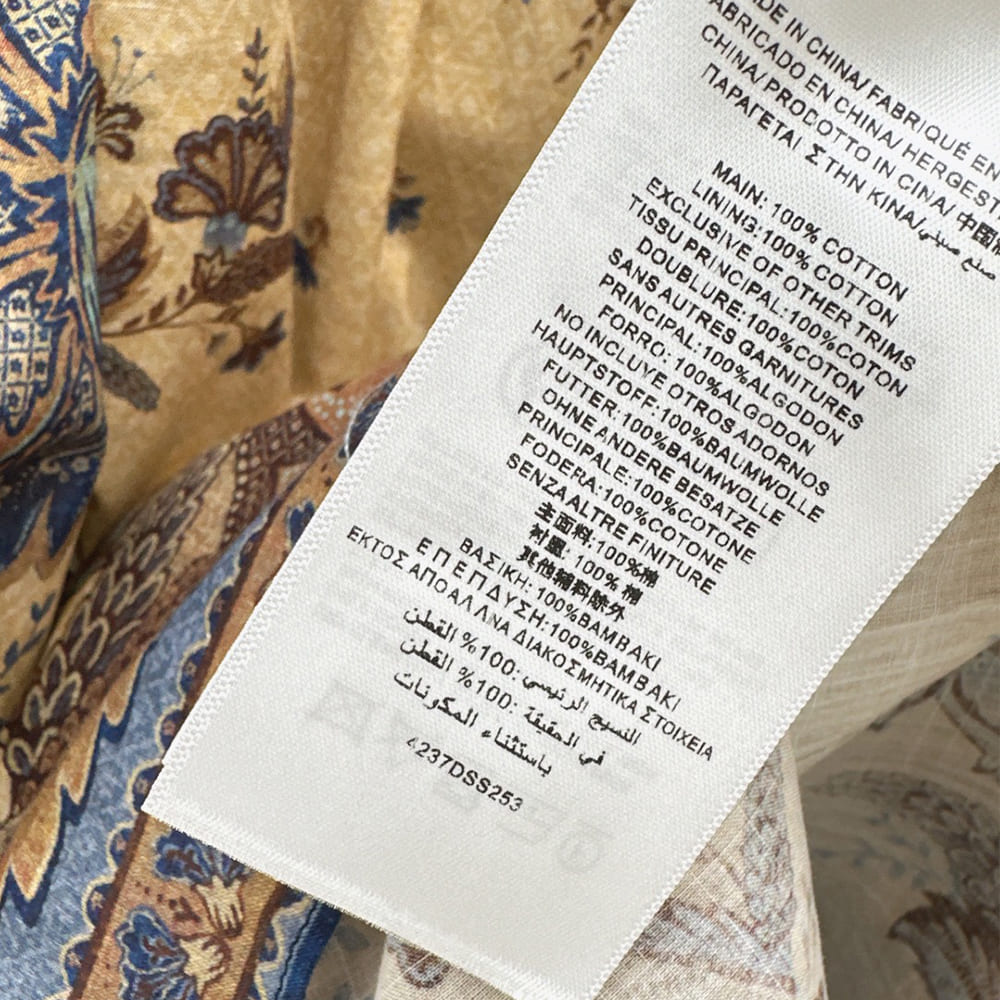 DE IN CHINA/ FABRIQUÉ EN
ABRICADO EN CHINA/ HERGEST
CHINA/ PRODOTTO IN CINA/ 中国
ΠΑΡΑΓΕΤΑΙ ΣΤΗΝ ΚΙΝΑ/ صنع صيني
MAIN: 100% COTTON
LINING:100% COTTON
EXCLUSIVE OF OTHER TRIMS
TISSU PRINCIPAL:100%COTON
DOUBLURE:100%COTON
SANS AUTRES GARNITURES
PRINCIPAL:100%ALGODON
FORRO: 100%ALGODON
NO INCLUYE OTROS ADORNOS
HAUPTSTOFF:100%BAUMWOLLE
FUTTER:100%BAUMWOLLE
OHNE ANDERE BESATZE
PRINCIPALE:100%COTONE
FODERA:100%COTONE
SENZA ALTRE FINITURE
主面料:100%棉
衬里: 100% 棉
其他辅料除外
ΒΑΣΙΚΗ: 100%BAMBAKI
ΕΠΕΠΔΥΣΗ:100%BAMBAKI
ΕΚΤΟΣ ΑΠΟ ΑΛΛΝΑ ΔΙΑΚΟΣΜΗΤΙΚΑ ΣΤΟΙΧΕΙΑ
النسيج الرئيسي :100% القطن
في الحقيقة :100% القطن
باستثناء المكونات
4237DSS253